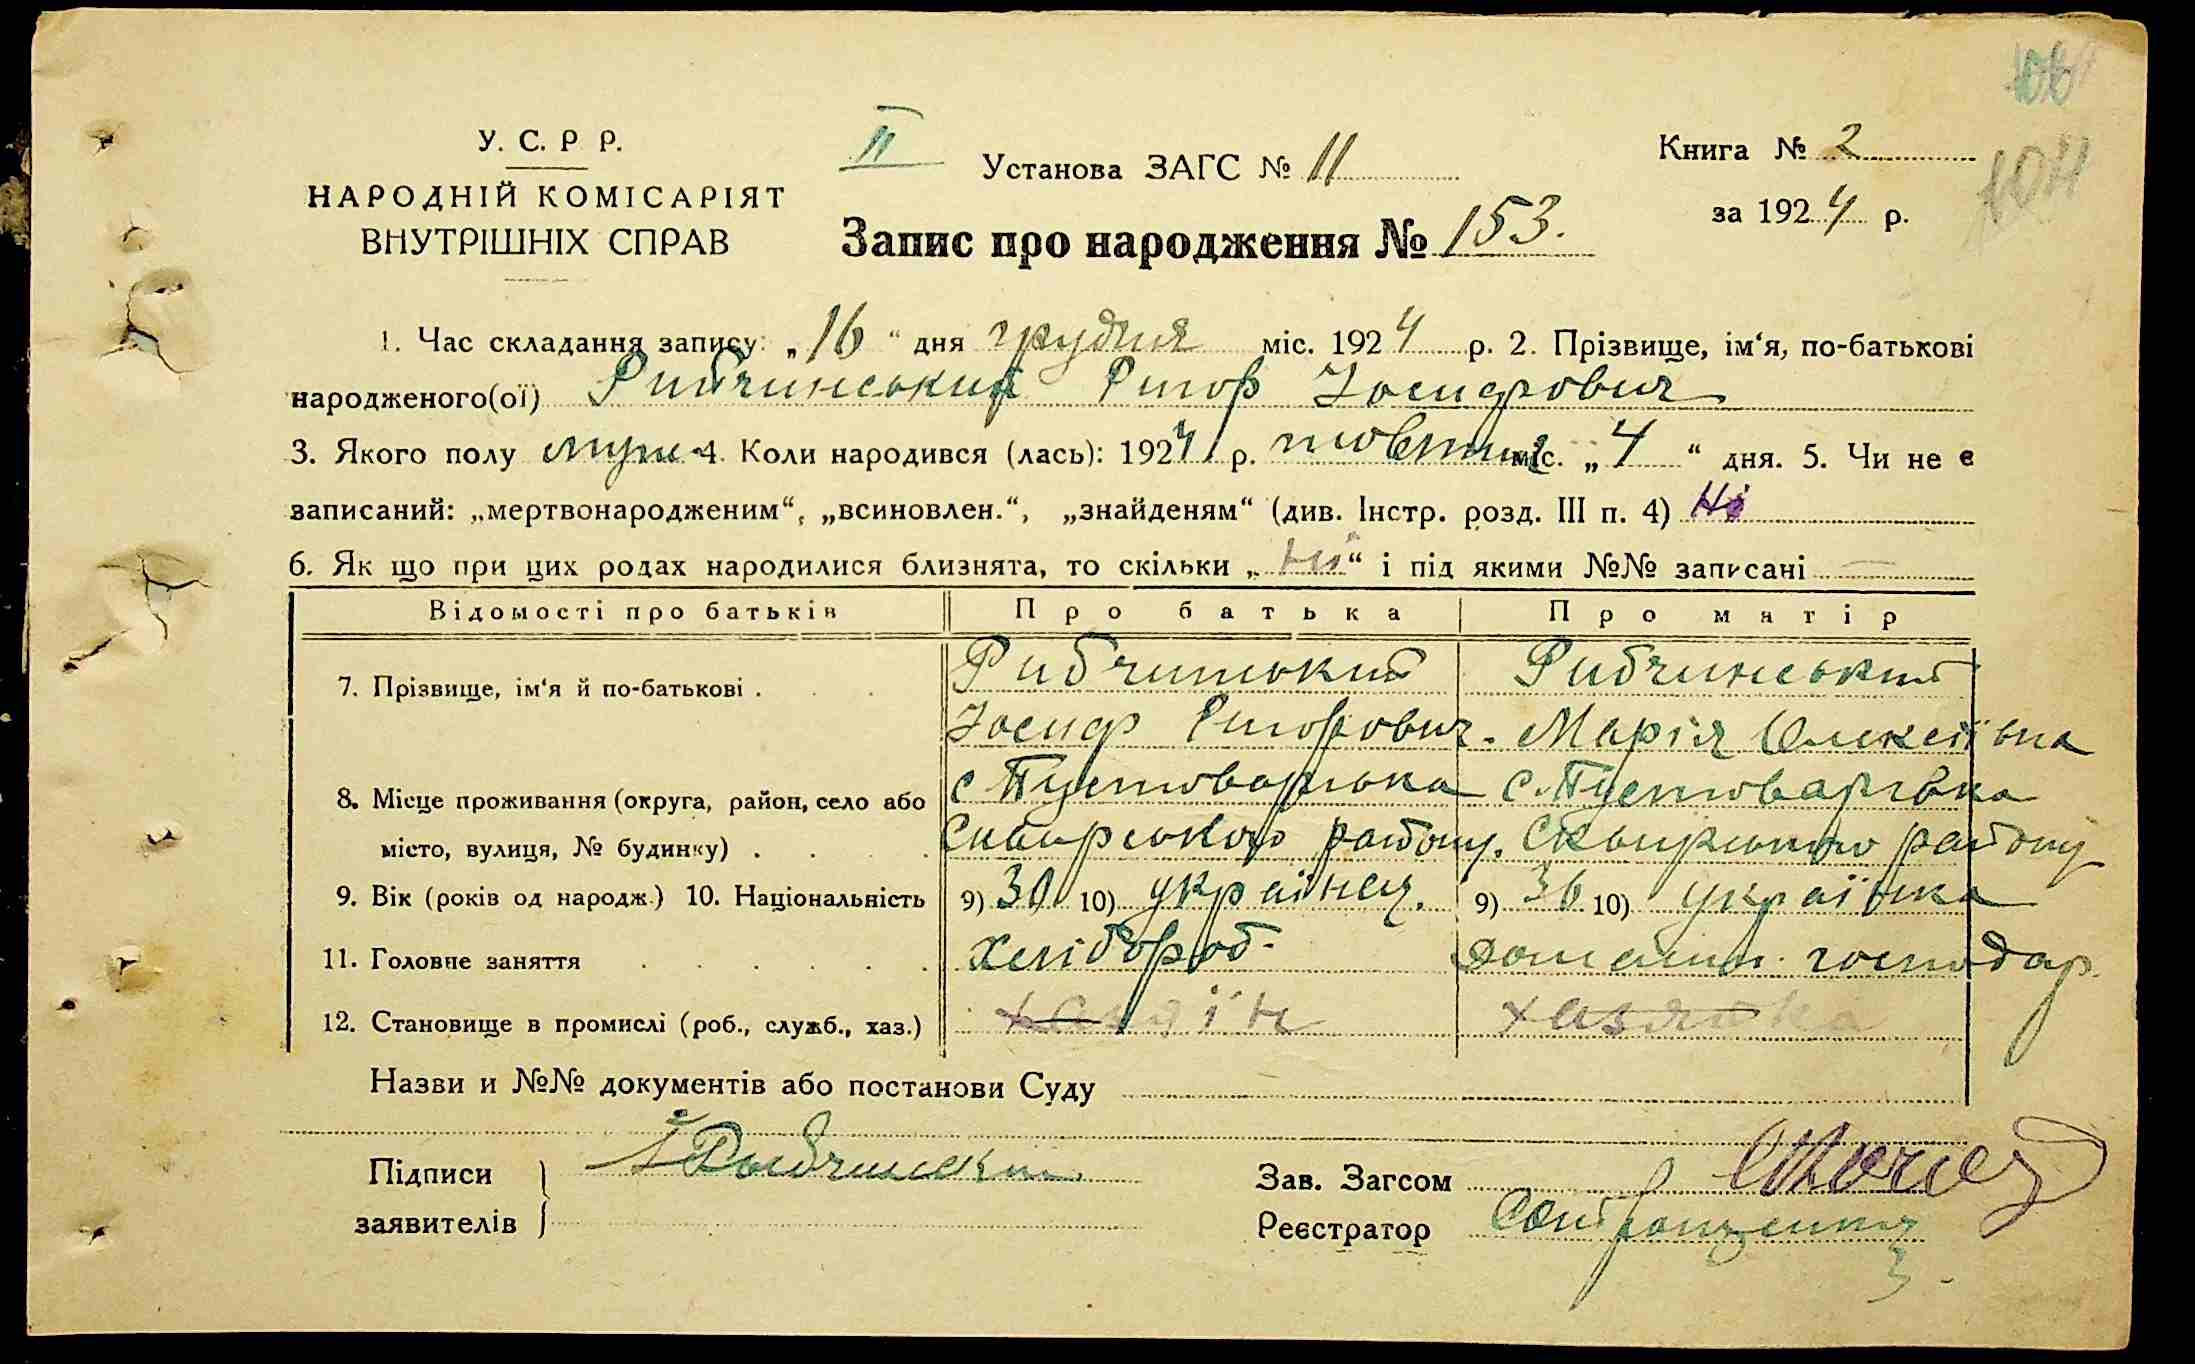 У. С. Р Р.
НАРОДНІЙ КОМІСАРІЯТ
ВНУТРІШНІХ СПРАВ
II
Установа ЗАГС № 11
Запис про народження № 153.
Книга № 2
за 1924 р.
104
1. Час складання запису: „16“ дня грудня міс. 1924 р. 2. Прізвище, ім‘я, по-батькові
народженого(ої) Рибчинський Ригор Йосифович
3. Якого полу муж. 4. Коли народився (лась): 1924 р. жовтня міс. „4“ дня. 5. Чи не є
записаний: „мертвонародженим“, „всиновлен.“, „знайденям“ (див. Інстр. розд. III п. 4) Ні
6. Як що при цих родах народилися близнята, то скільки „ні“ і під якими №№ записані —
Відомості про батьків Про батька Про матір
7. Прізвище, ім‘я й по-батькові . Рибчинський Рибчинський
Йосиф Ригорович. Марія Олексіївна
8. Місце проживання (округа, район, село або с. Пустоварівка с. Пустоварівка
місто, вулиця, № будинку) . Сквирського району. Сквирського району
9. Вік (років од народж.) 10. Національність 9) 30 10) українец. 9) 36 10) українка
11. Головне заняття Хлібороб. домашн. господар.
12. Становище в промислі (роб., служб., хаз.) хазяїн хазяйка
Назви и №№ документів або постанови Суду
Підписи Рыбчинский Зав. Загсом
заявителів Реєстратор